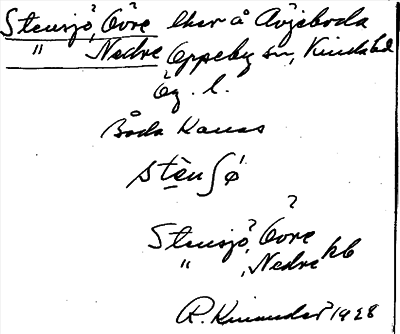 Stensjö, Övre skar å Avjeboda
" Nedre Oppeby sn, Kinda hd
Ög. l.
Båda kallas
stènʃø
?
Stensjö, Övre
" , Nedre kb
R. Kinander 1928